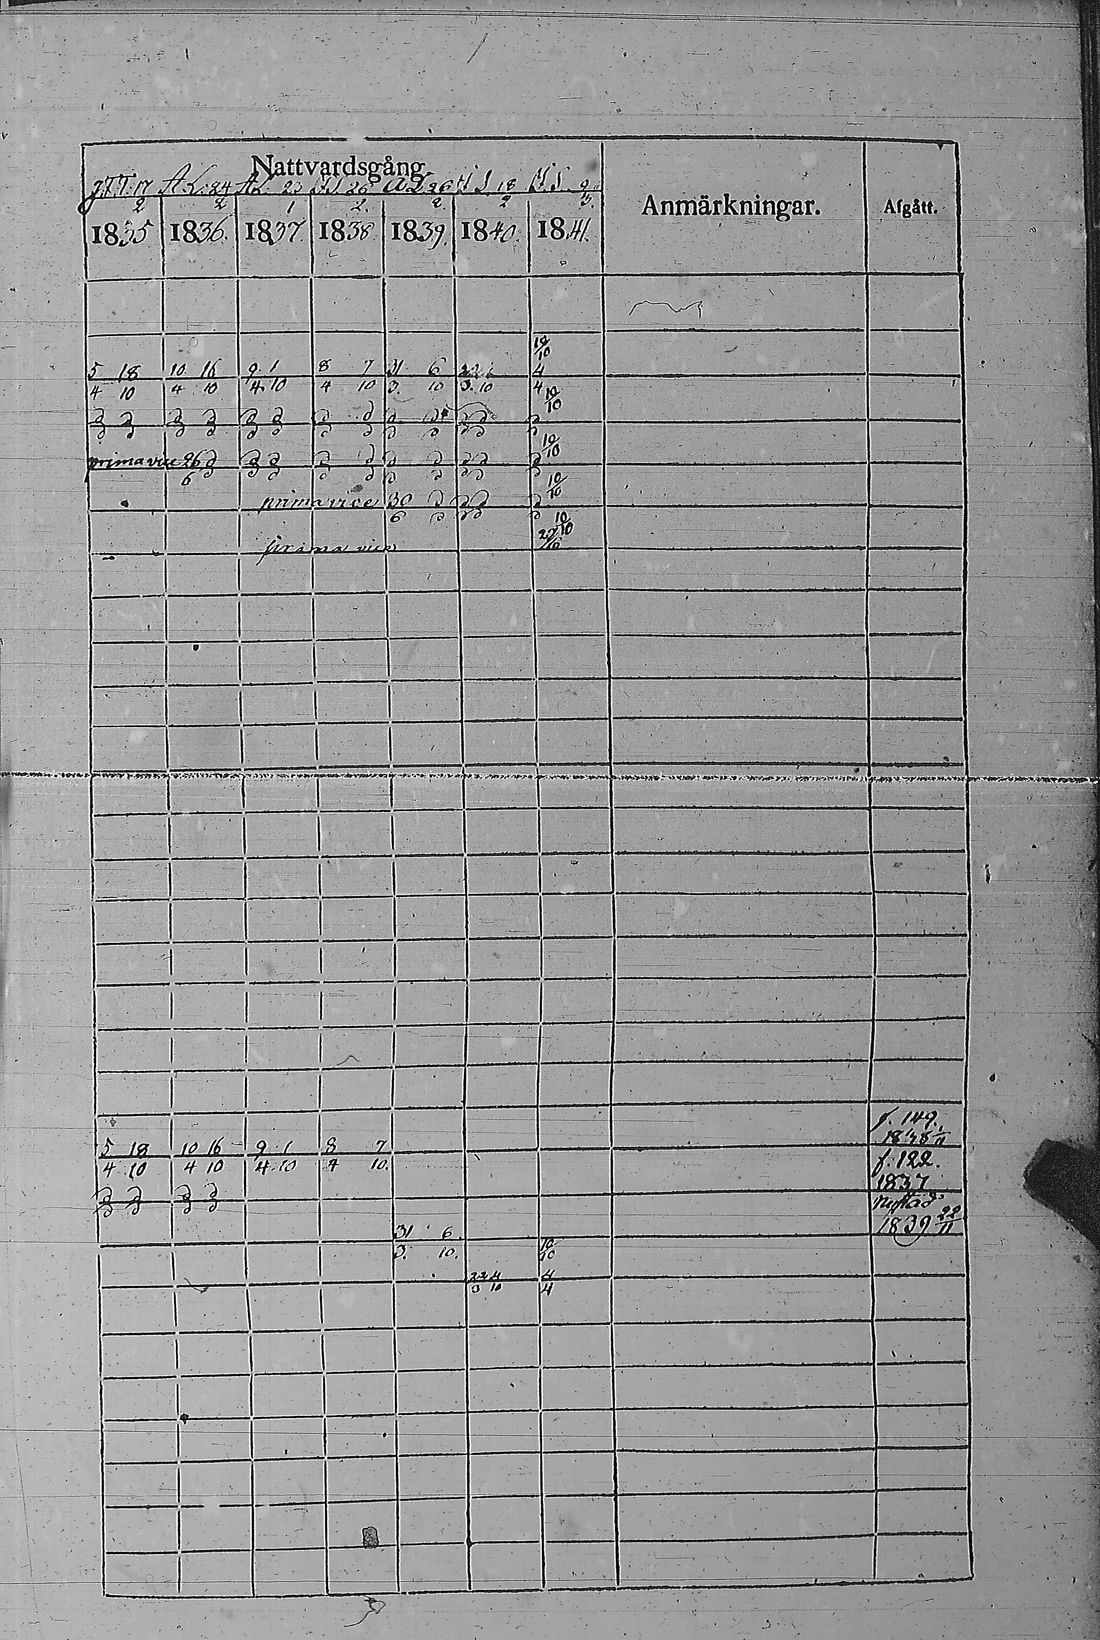 Nattvardsgång
17 A.L. 24 23 26 A.L. 26 18 9
2 2 1 2. 2. 2 3.
1835 1836. 1837. 1838 1839. 1840. 1841.
Anmärkningar. Afgått.
10/10
5 18 10 16 9 1 8 7 31 6 4
4 10 4 10 4 10 4 10 3. 10 3. 10 4
10/10
prima vice 26 10/10
6
prima vice 30 10/10
6
10/10
prima vice
f. 149.
5 18 10 16 9 1 8 7
4 10 4 10 4 10 4 10. f. 122.
1837
Nystad
31 6 1839 22/11
3. 10. 10/10
4
3 10 4